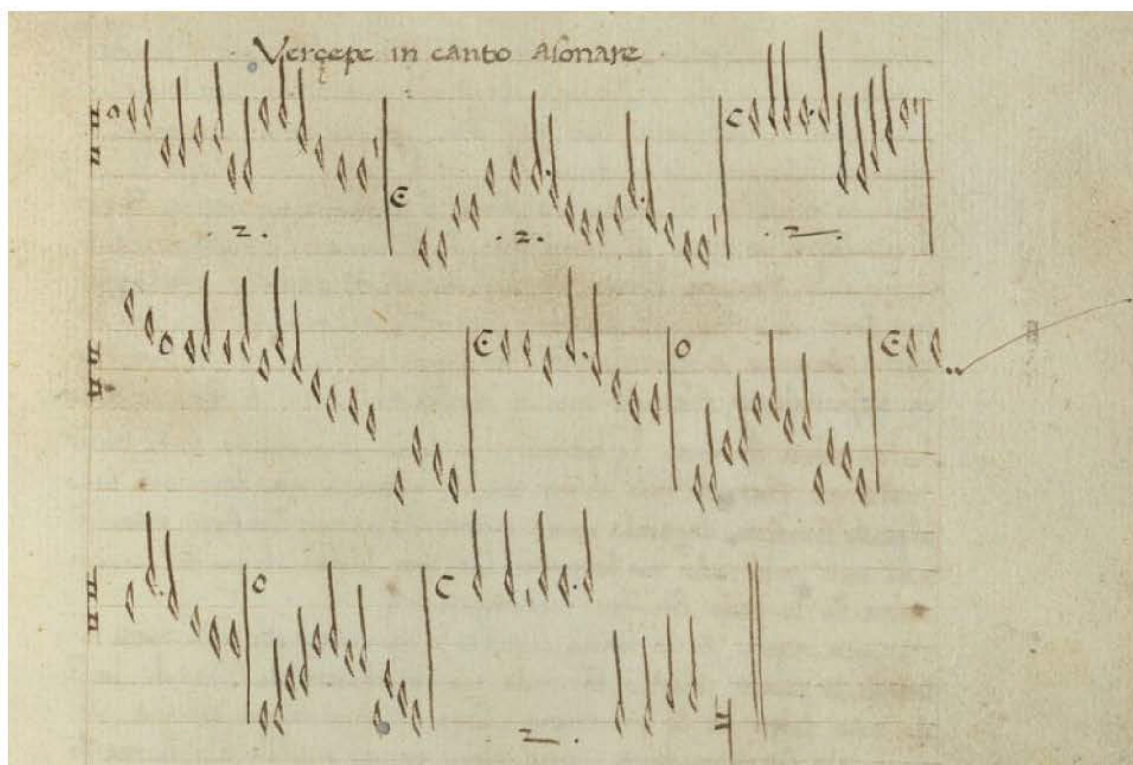 Verçepe in canto asonare
.2.
.2.
.2.
2.